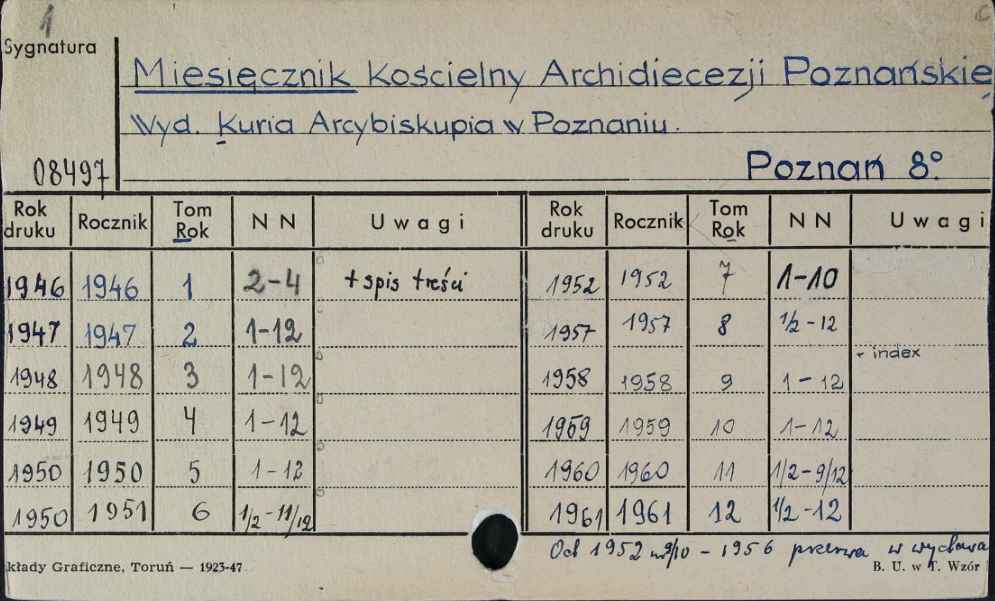 1
Sygnatura
Miesięcznik Kościelny Archidiecezji Poznańskiej
Wyd. Kuria Arcybiskupia w Poznaniu.
08497
Poznań 8°.
Rok druku Rocznik Tom Rok NN Uwagi Rok druku Rocznik Tom Rok NN Uwagi
1946 1946 1 2-4 + spis treści 1952 1952 7 1-10
1947 1947 2 1-12 1957 1957 8 1/2-12
- index
1948 1948 3 1-12 1958 1958 9 1-12
1949 1949 4 1-12 1959 1959 10 1-12
1950 1950 5 1-12 1960 1960 11 1/2-9/12
1950 1951 6 1/2-11/12 1961 1961 12 1/2-12
Od 1952 nr 9/10 - 1956 przerwa w wydawa
kłady Graficzne, Toruń — 1923-47 B. U. w T. Wzór